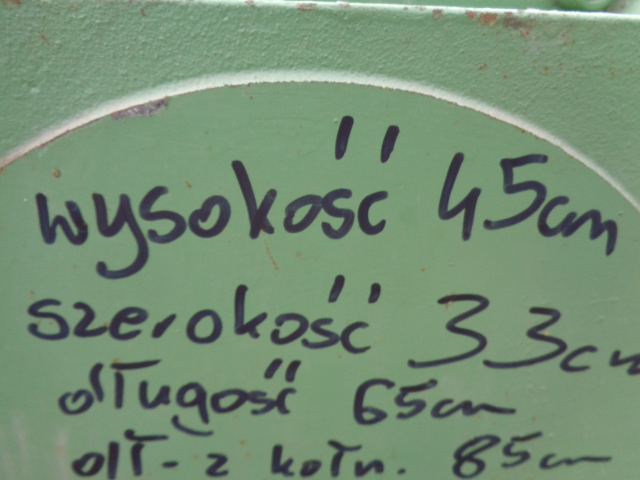 wysokość 45cm
szerokość 33cm
długość 65cm
dł - z kołn. 85cm